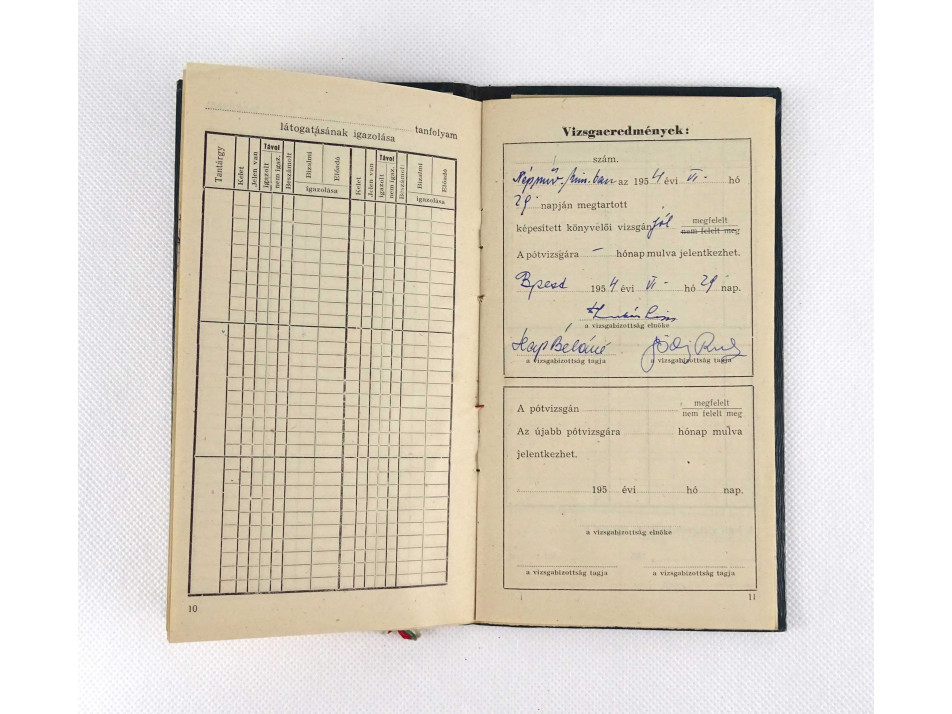 tanfolyam
látogatásának igazolása
Tantárgy
Kelet
Jelen van
Távol
igazolt
nem igaz.
Beszámolt
Bizalmi
Előadó
igazolása
Kelet
Jelen van
Távol
igazolt
nem igaz.
Beszámolt
Bizalmi
Előadó
igazolása
10
Vizsgaeredmények:
szám.
Népműv. Min.-ban az 1954 évi VI. hó
29 napján megtartott
képesített könyvelői vizsgán jól megfelelt
nem felelt meg
A pótvizsgára – hónap mulva jelentkezhet.
Bpest 1954 évi VI. hó 29 nap.
a vizsgabizottság elnöke
Béláné
a vizsgabizottság tagja a vizsgabizottság tagja
A pótvizsgán megfelelt
nem felelt meg
Az újabb pótvizsgára hónap mulva
jelentkezhet.
195 évi hó nap.
a vizsgabizottság elnöke
a vizsgabizottság tagja a vizsgabizottság tagja
11